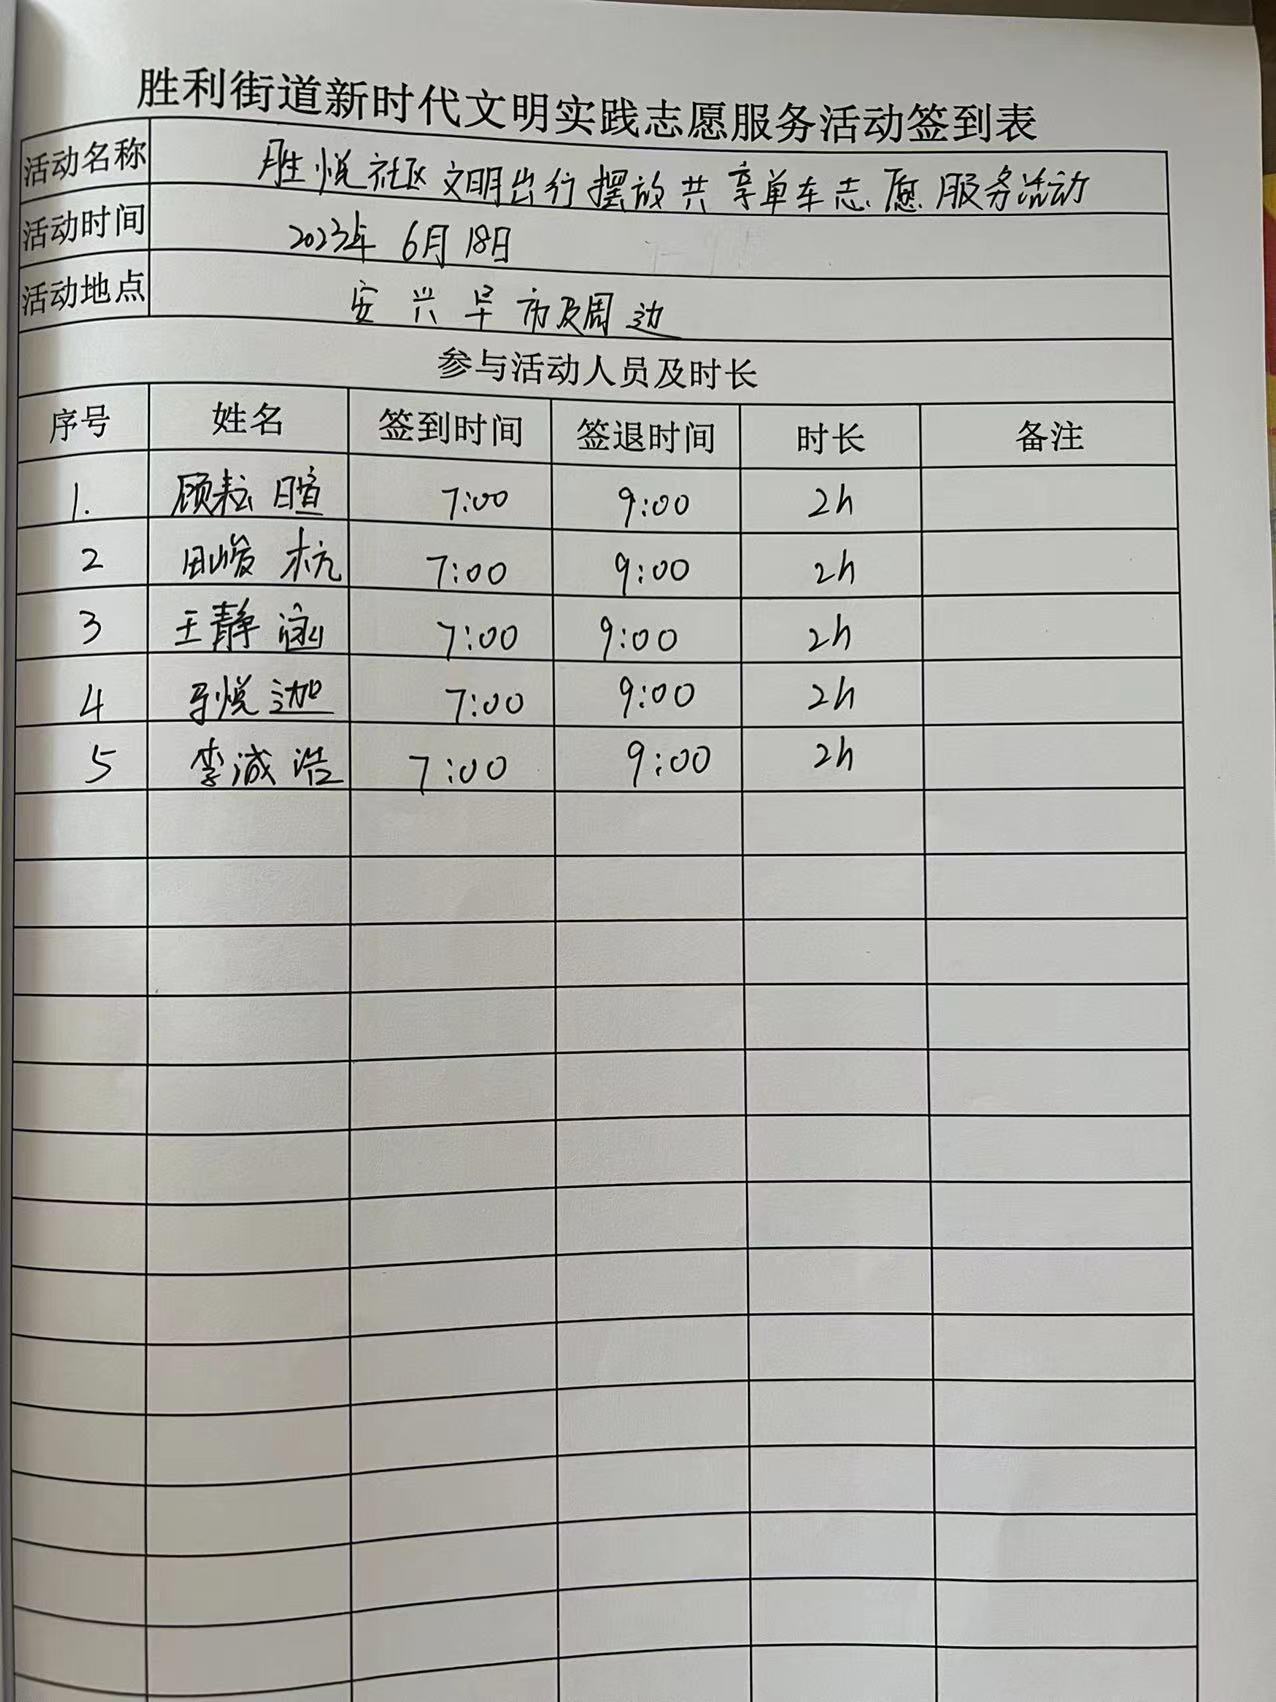 胜利街道新时代文明实践志愿服务活动签到表
活动名称 胜悦社区文明出行摆放共享单车志愿服务活动
活动时间 2023年6月18日
活动地点 安兴早市及周边
参与活动人员及时长
序号 姓名 签到时间 签退时间 时长 备注
1. 顾耘暄 7:00 9:00 2h
2 田峻杭 7:00 9:00 2h
3 王静涵 7:00 9:00 2h
4 悦迦 7:00 9:00 2h
5 李诚浩 7:00 9:00 2h